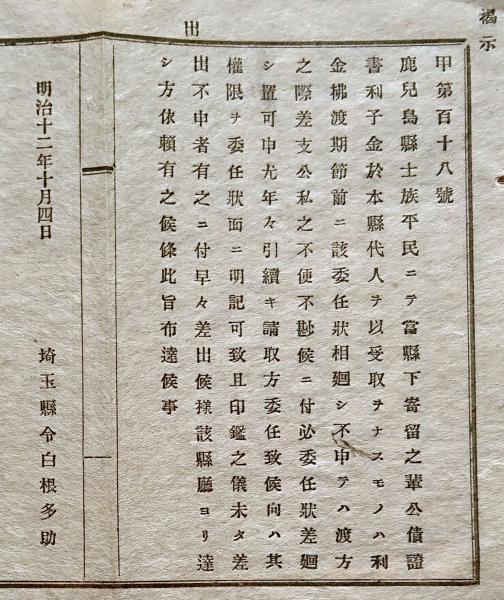 揭示
甲第百十八號
鹿兒島縣士族平民ニテ當縣下寄留之輩公債證
書利子金於本縣代人ヲ以受取ヲナスモノハ利
金拂渡期節前ニ該委任狀相廻シ不申テハ渡方
之際差支公私之不便不尠候ニ付必委任狀差廻
シ置可申尤年々引續キ請取方委任致候向ハ其
權限ヲ委任狀面ニ明記可致且印鑑之儀未タ差
出不申者有之ニ付早々差出候樣該縣廳ヨリ達
シ方依賴有之候條此旨布達候事
明治十二年十月四日
埼玉縣令白根多助
出